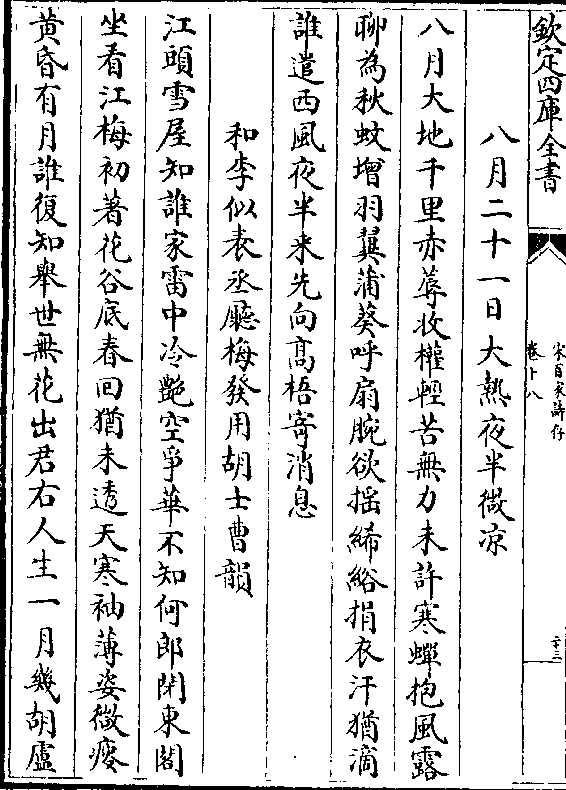 欽定四庫全書
宋百家詩存
卷十八
二十三
八月二十一日大熱夜半微凉
八月大地千里赤蓐收權輕苦無力未許寒蟬抱風露
聊為秋蚊增羽翼蒲葵呼扇腕欲摇絺綌捐衣汗猶滴
誰遣西風夜半来先向髙梧寄消息
和李似表丞廳梅發用胡士曹韻
江頭雪屋知誰家雷中冷艶空爭華不知何郎閉東閣
坐看江梅初著花谷底春回猶未透天寒袖薄姿微瘦
黄昏有月誰復知舉世無花出君右人生一月幾胡盧